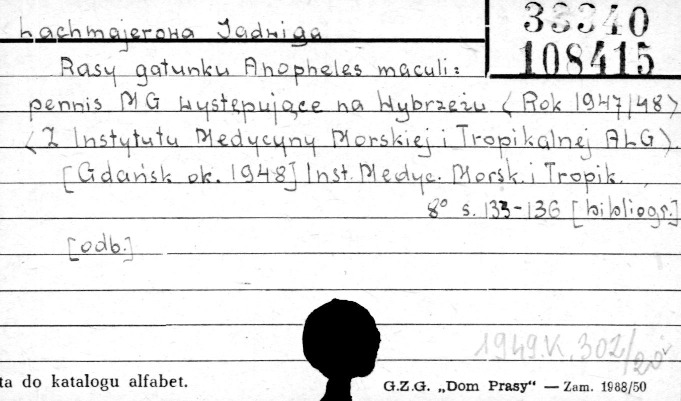 Lachmajerowa Jadwiga
33340
108415
Rasy gatunku Anopheles maculi=
pennis MG występujące na Wybrzeżu (Rok 1947/48)
(Z Instytutu Medycyny Morskiej i Tropikalnej ALG).
[Gdańsk ok. 1948] Inst. Medyc. Morsk. i Tropik.
8° s. 133-136 [bibliogr.]
[odb.]
1949.K.302/20
ta do katalogu alfabet.
G.Z.G. „Dom Prasy" — Zam. 1988/50